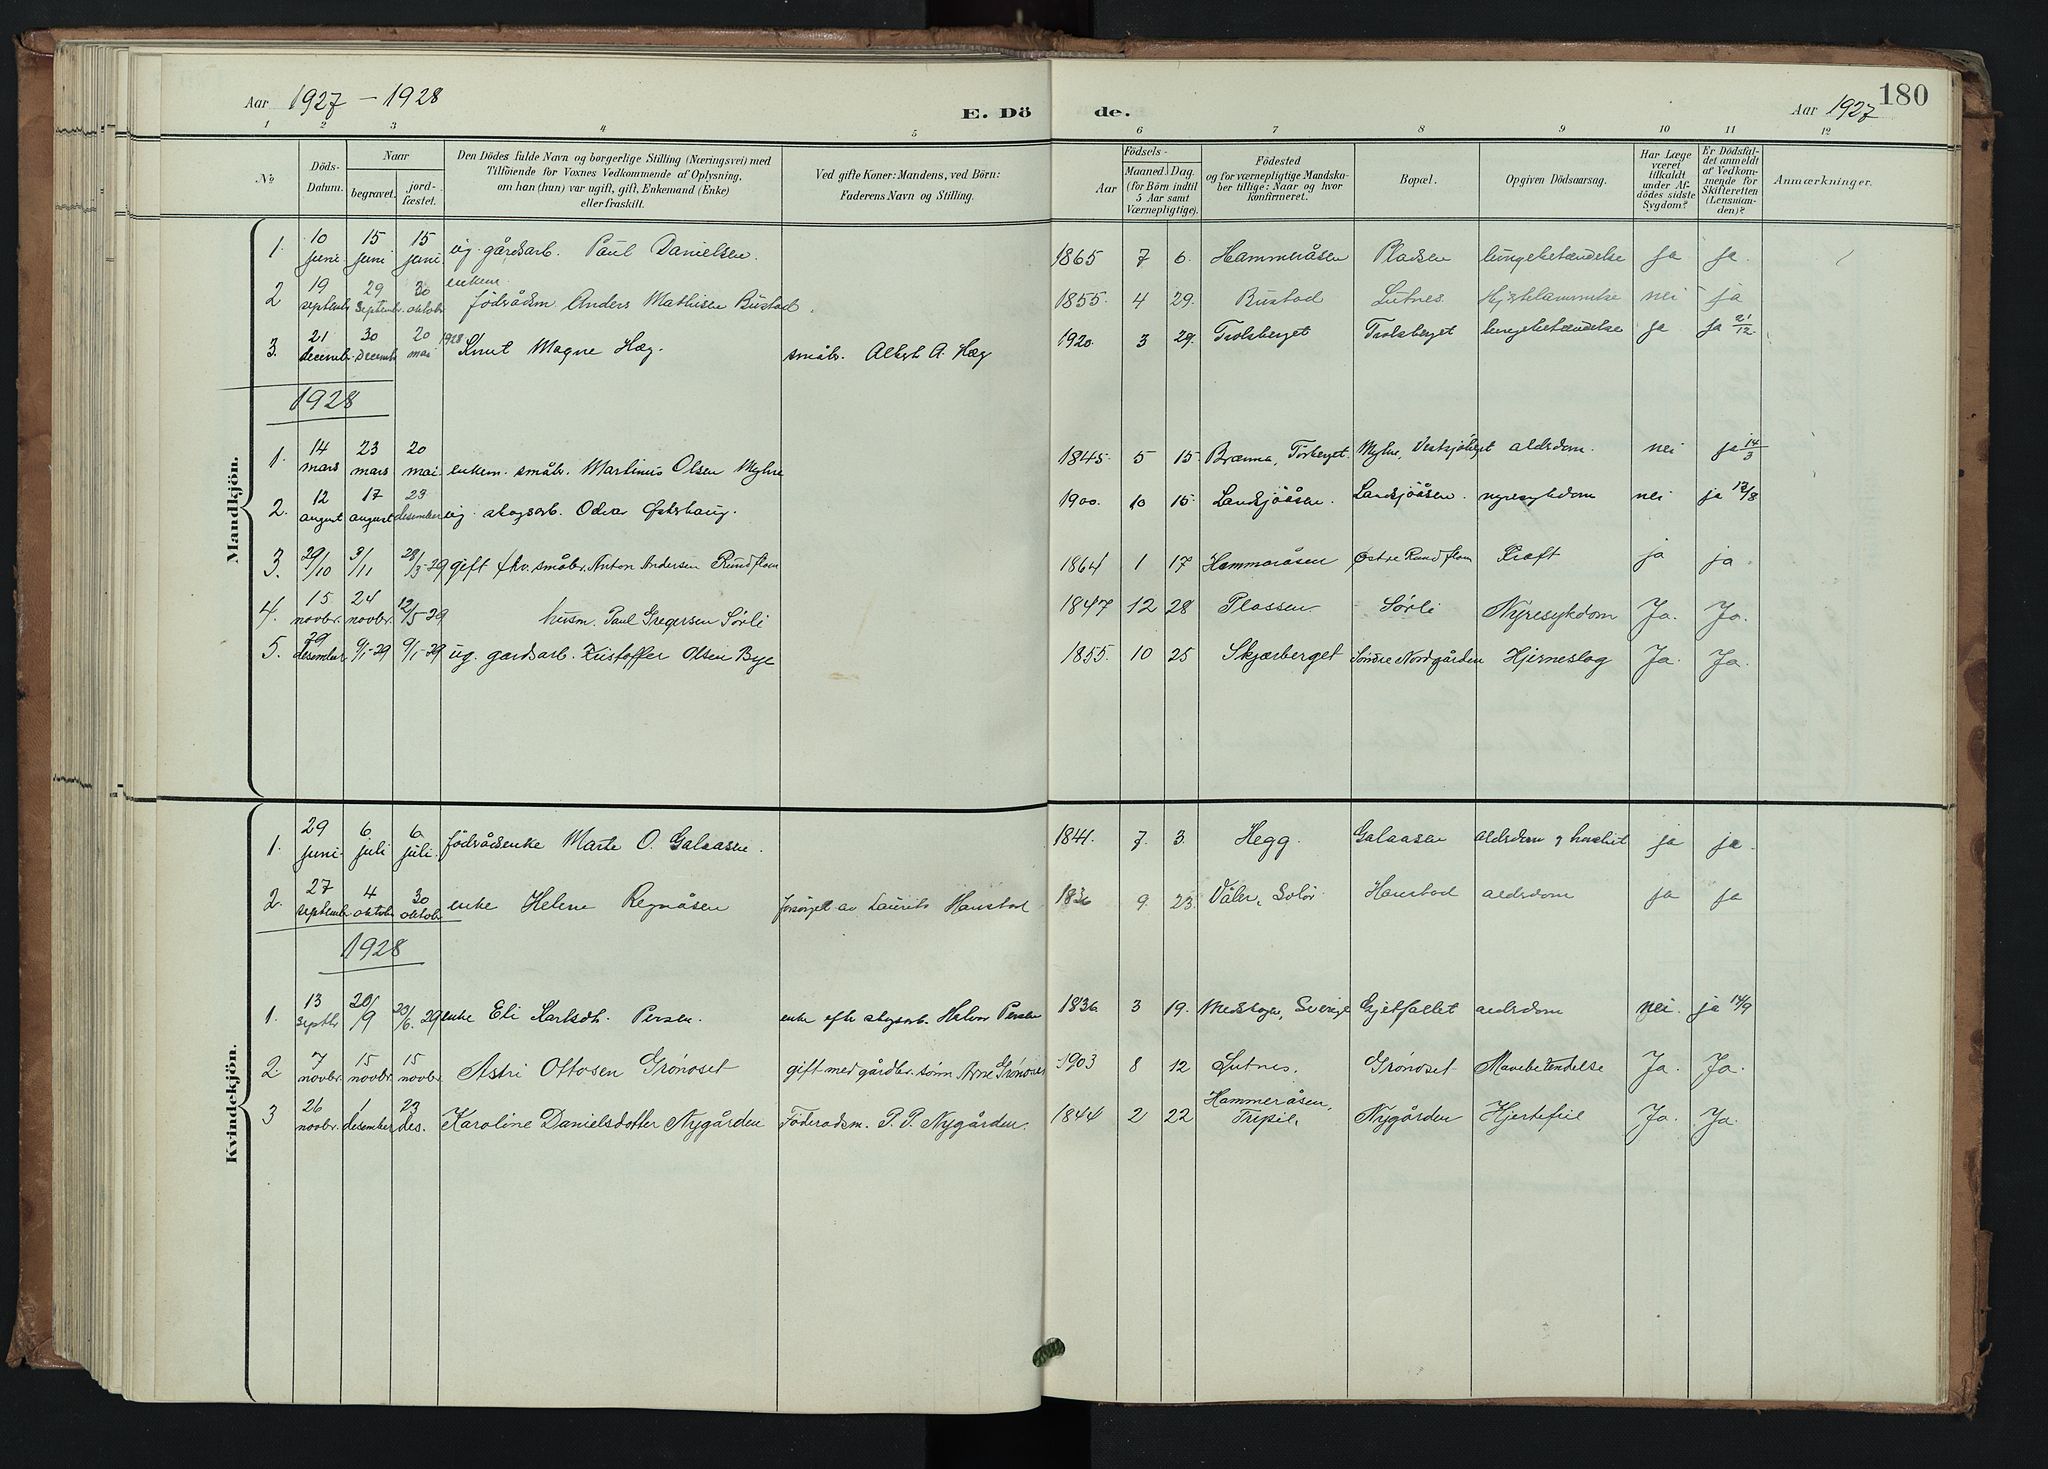 Aar 1927 – 1928 E. Dö de. Aar 1927 180
1 2 3 4 5 6 7 8 9 10 11 12
№ Döds-Datum. Naar begravet. jordfæstet. Den Dödes fulde Navn og borgerlige Stilling (Næringsvei) med Tilföiende for Voxnes Vedkommende af Oplysning, om han (hun) var ugift, gift, Enkemand (Enke) eller fraskilt. Ved gifte Koner: Mandens, ved Börn: Faderens Navn og Stilling. Födsels- Aar Maaned. Dag. (for Börn indtil 5 Aar samt Værnepligtige). Födested og for værnepligtige Mandskaber tillige: Naar og hvor konfirmeret. Bopæl. Opgiven Dödsaarsag. Har Læge været tilkaldt under Afdödes sidste Sygdom? Er Dödsfaldet anmeldt af Vedkommende for Skifteretten (Lensmanden)? Anmærkninger.
Mandkjön.
1. 10 juni 15 juni 15 juni ug. gårdsarb. Paul Danielsen. 1865 7 6. Hammeråsen Pladsen lungebetændelse ja ja.
2 19 septembr 29 septembr. 30 oktobr enkem. födrådsm. Anders Mathisen Bustad. 1855. 4 29. Bustad Lutnes. Hjertelammelse nei ja
3. 21 decembr. 30 Decembr 20 mai 1928 Knut Magne Hæg. småbr. Albert A. Hæg 1920. 3 29. Trolsberget Trolsberget lungebetændelse ja ja 21/12
1928
1. 14 mars 23 mars 20 mai enkem. småbr. Martinus Olsen Myhre 1845 5 15 Brænna, Törberget. Myhre, Vestsjöberget aldsdom. nei ja 14/3
2. 12 august 17 august 23 desember ug. skogsarb. Odvar Østerhaug. 1900. 10 15. Landsjöåsen. Landsjöåsen. nyresykdom nei ja 13/8
3. 29/10 3/11 28/3-29 gift fhv. småbr. Anton Andersen Rundflom 1864 1 17 Hammeråsen Østre Rundflom Kræft ja ja.
4. 15 novbr. 24 novbr. 12/5-29 husm. Paul Gregersen Sörli 1847 12 28 Plassen Sörli Nyresykdom Ja. Ja.
5. 29 desember 9/1-29 9/1-29 ug. gardsarb. Kristoffer Olsen Bye 1855. 10 25 Skjærberget Søndre Nordgården Hjerneslag Ja. Ja.
Kvindekjön.
1. 29 juni 6 juli 6 juli. födrådsenke Marte O. Galaasen. 1841. 7. 3. Hegg. Galaasen aldsdom ja ja.
2. 27 septembr 4 oktobr 30 oktobr enke Helene Regnåsen forsörget av Laurits Hanstad 1836 9. 23. Våler, Solör Hanstad aldsdom ja ja
1928
1. 13 septbr 20/9 23/6. 29 enke Eli Karlsdtr. Persen. enke efter skogsarb. Halvor Persen 1836 3 19. Medskogen, Sverige Gjetfallet aldsdom nei. ja 14/9
2 7 novbr. 15 novbr 15 novbr. Astri Ottosen Grönoset gift med gårdbr. sönn Arne Grönoset 1903 8 12 Lutnes. Grönoset Mavebetendelse Ja. Ja.
3 26 novbr. 1 desember 23 des. Karoline Danielsdotter Nygården Föderådsm. P. P. Nygården. 1844 2 22 Hammeråsen, Trysil. Nygården Hjertefeil Ja. Ja.